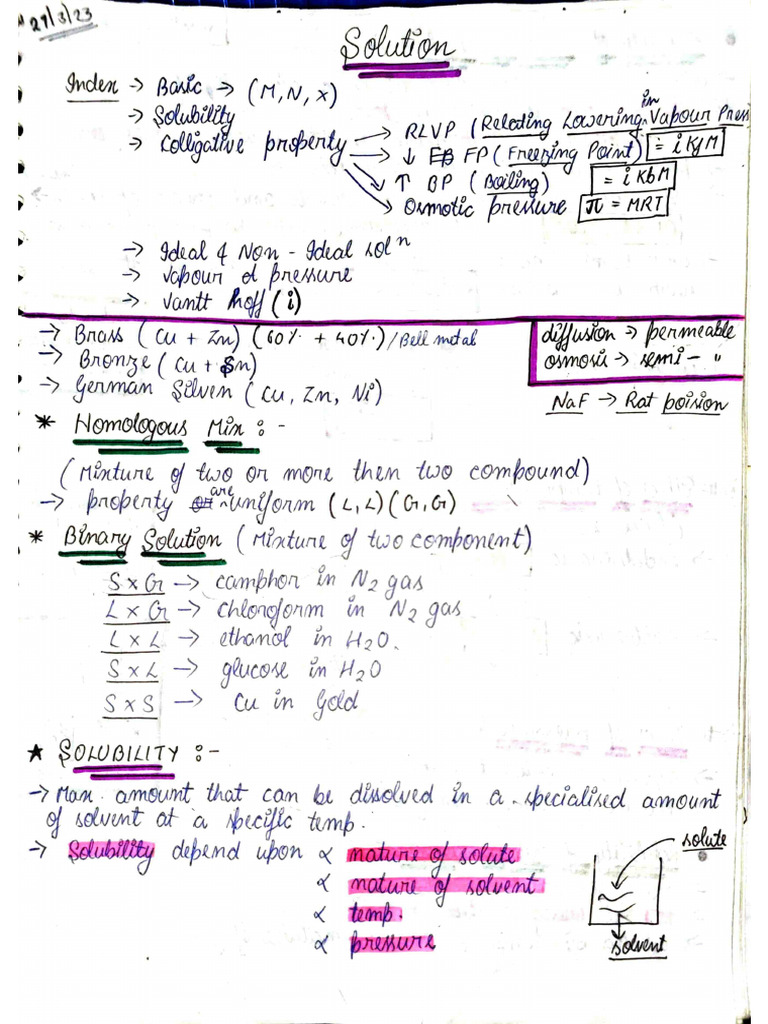 29/3/23
Solution
Index → Basic → (M, N, X)
→ Solubility
→ Colligative property → RLVP (Releating Lowering in Vapour Press
→ ↓ FP (Freezing Point) = i Kf M
→ ↑ BP (Boiling) = i Kb M
→ Osmotic pressure π = MRT
→ Ideal & Non - Ideal solⁿ
→ vapour of pressure
→ vantt hoff (i)
→ Brass (Cu + Zn) (60% + 40%) / Bell metal
→ Bronze (Cu + Sn)
→ German Silver (Cu, Zn, Ni)
diffusion → permeable
osmosis → semi - "
NaF → Rat poision
* Homologous Mix : -
(Mixture of two or more then two compound)
→ property are uniform (L, L) (G, G)
* Binary Solution (Mixture of two component)
S x G → camphor in N2 gas
L x G → chloroform in N2 gas
L x L → ethanol in H2O.
S x L → glucose in H2O
S x S → Cu in Gold
★ SOLUBILITY : -
→ Max. amount that can be dissolved in a specialised amount
of solvent at a specific temp.
→ Solubility depend upon ∝ nature of solute
∝ nature of solvent
∝ temp.
∝ pressure
solute
solvent